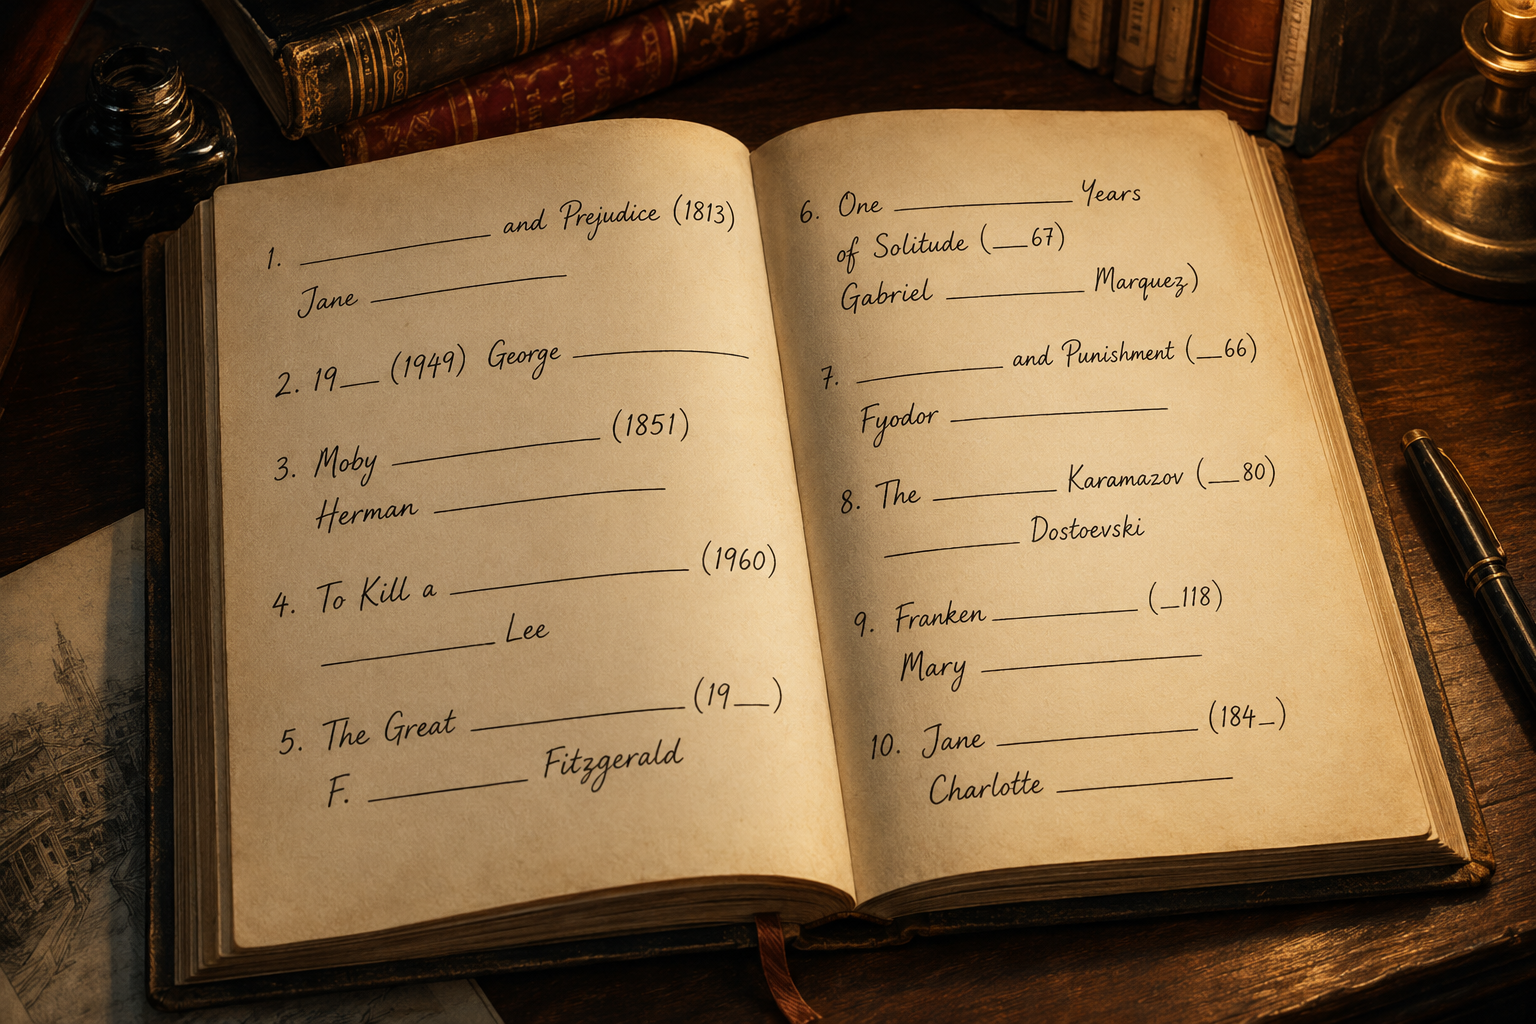 1. __________ and Prejudice (1813)
Jane __________
2. 19__ (1949) George __________
3. Moby __________ (1851)
Herman __________
4. To Kill a __________ (1960)
__________ Lee
5. The Great __________ (19__)
F. __________ Fitzgerald
6. One __________ Years
of Solitude (__67)
Gabriel __________ Marquez)
7. __________ and Punishment (__66)
Fyodor __________
8. The __________ Karamazov (__80)
__________ Dostoevski
9. Franken__________ (_118)
Mary __________
10. Jane __________ (184_)
Charlotte __________